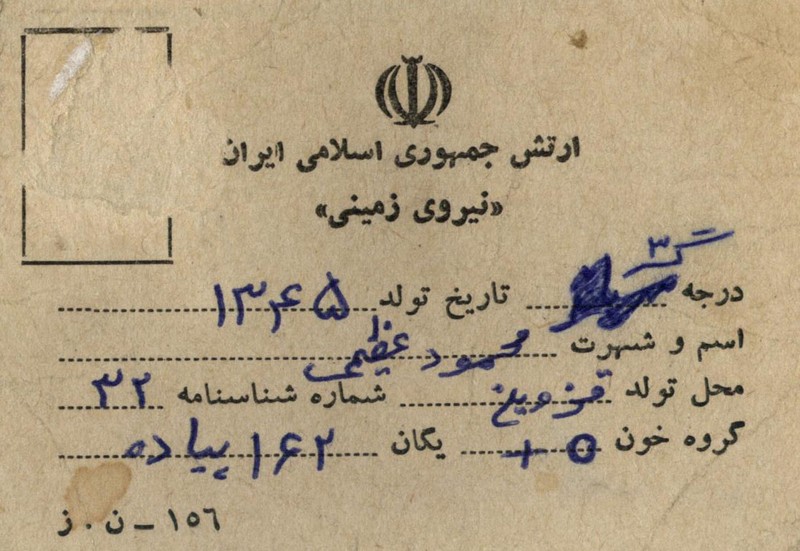 ارتش جمهوری اسلامی ایران
«نیروی زمینی»
درجه گ ۳ تاریخ تولد ۱۳۴۵
اسم و شهرت محمود عظیمی
محل تولد قزوین شماره شناسنامه ۳۲
گروه خون O + یگان ۱۶۲ پیاده
۱۵۶ - ن . ز